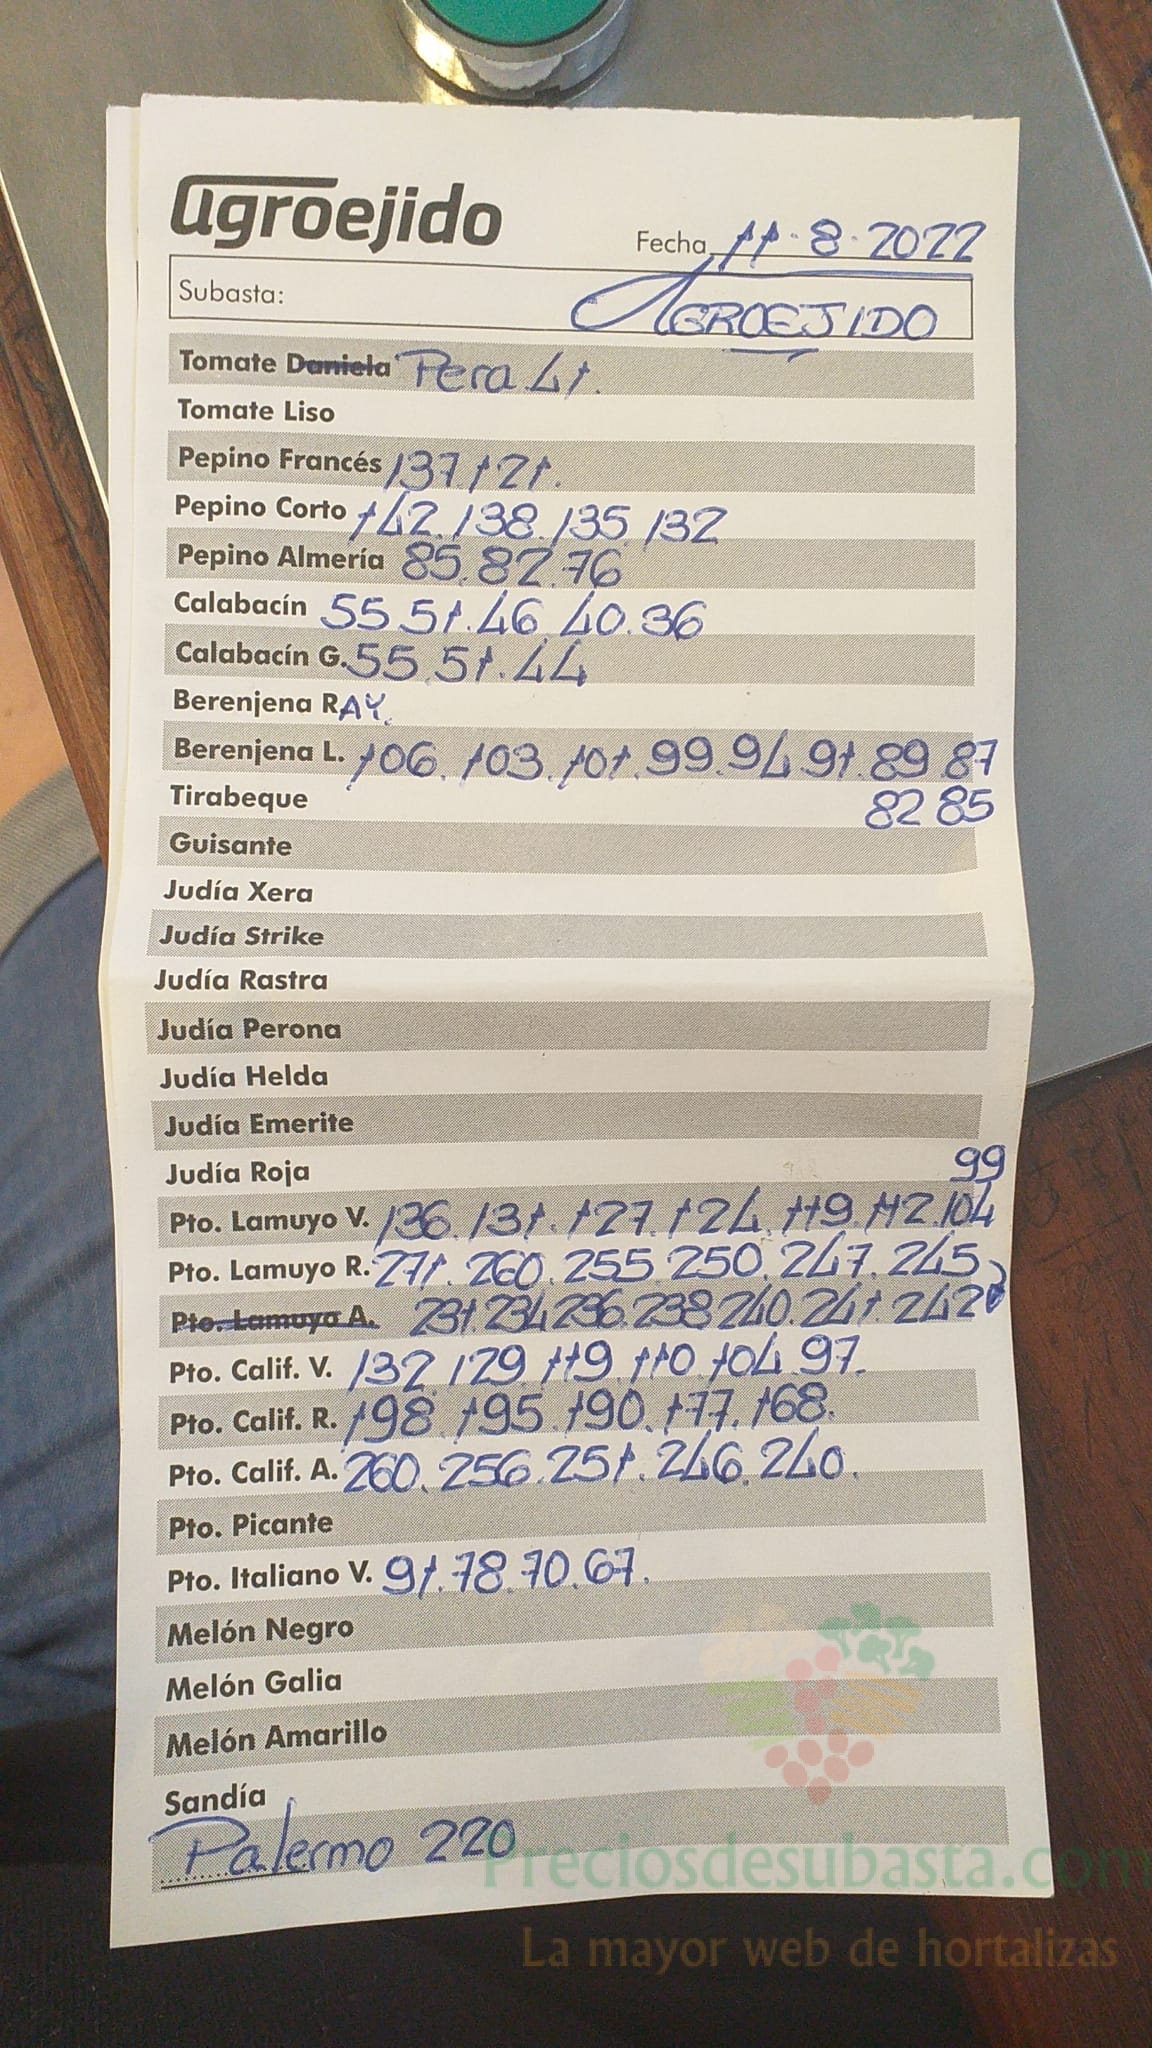 agroejido
Fecha 11·8·2022
Subasta: AGROEJIDO
Tomate Daniela Pera 41.
Tomate Liso
Pepino Francés 137.121.
Pepino Corto 142.138.135.132
Pepino Almería 85.82.76
Calabacín 55.51.46.40.36
Calabacín G. 55.51.44
Berenjena RAY.
Berenjena L. 106.103.101.99.94 91.89 87
Tirabeque 82 85
Guisante
Judía Xera
Judía Strike
Judía Rastra
Judía Perona
Judía Helda
Judía Emerite
Judía Roja 99
Pto. Lamuyo V. 136.131.127.124.119.112.104
Pto. Lamuyo R. 271.260.255.250.247.245
Pto. Lamuyo A. 231.234.236.238.240.241.242
Pto. Calif. V. 132.129.119.110.104.97.
Pto. Calif. R. 198.195.190.177.168.
Pto. Calif. A. 260.256.251.246.240.
Pto. Picante
Pto. Italiano V. 91.78.70.67.
Melón Negro
Melón Galia
Melón Amarillo
Sandía
Palermo 220
Preciosdesubasta.com
La mayor web de hortalizas